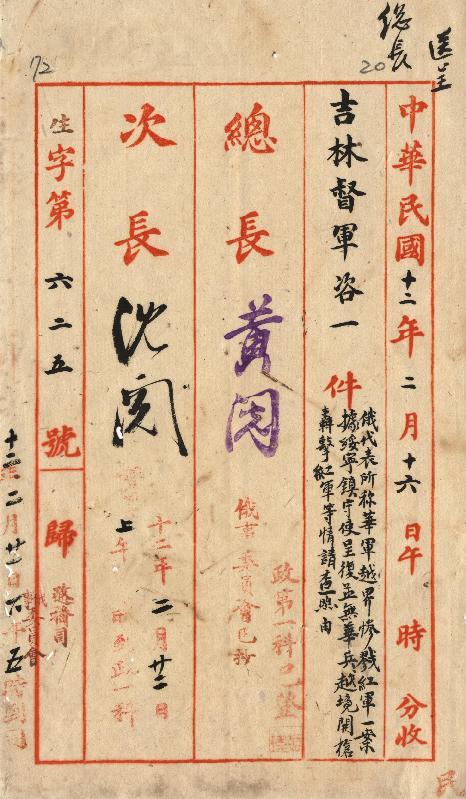 送呈
總長
20
72
中華民國十二年二月十六日午時分收
吉林督軍咨一件
俄代表所称華軍越界惨戮紅軍一案
據綏寧鎮守使呈復並無華兵越境開槍
轟擊紅軍等情請查照由
總長
黃閱
政第一科已登
俄事委員會已抄
次長
沈閱
十二年二月廿二日
上午
到政一科
字第六二五號
歸
政務司
十二年二月廿一日